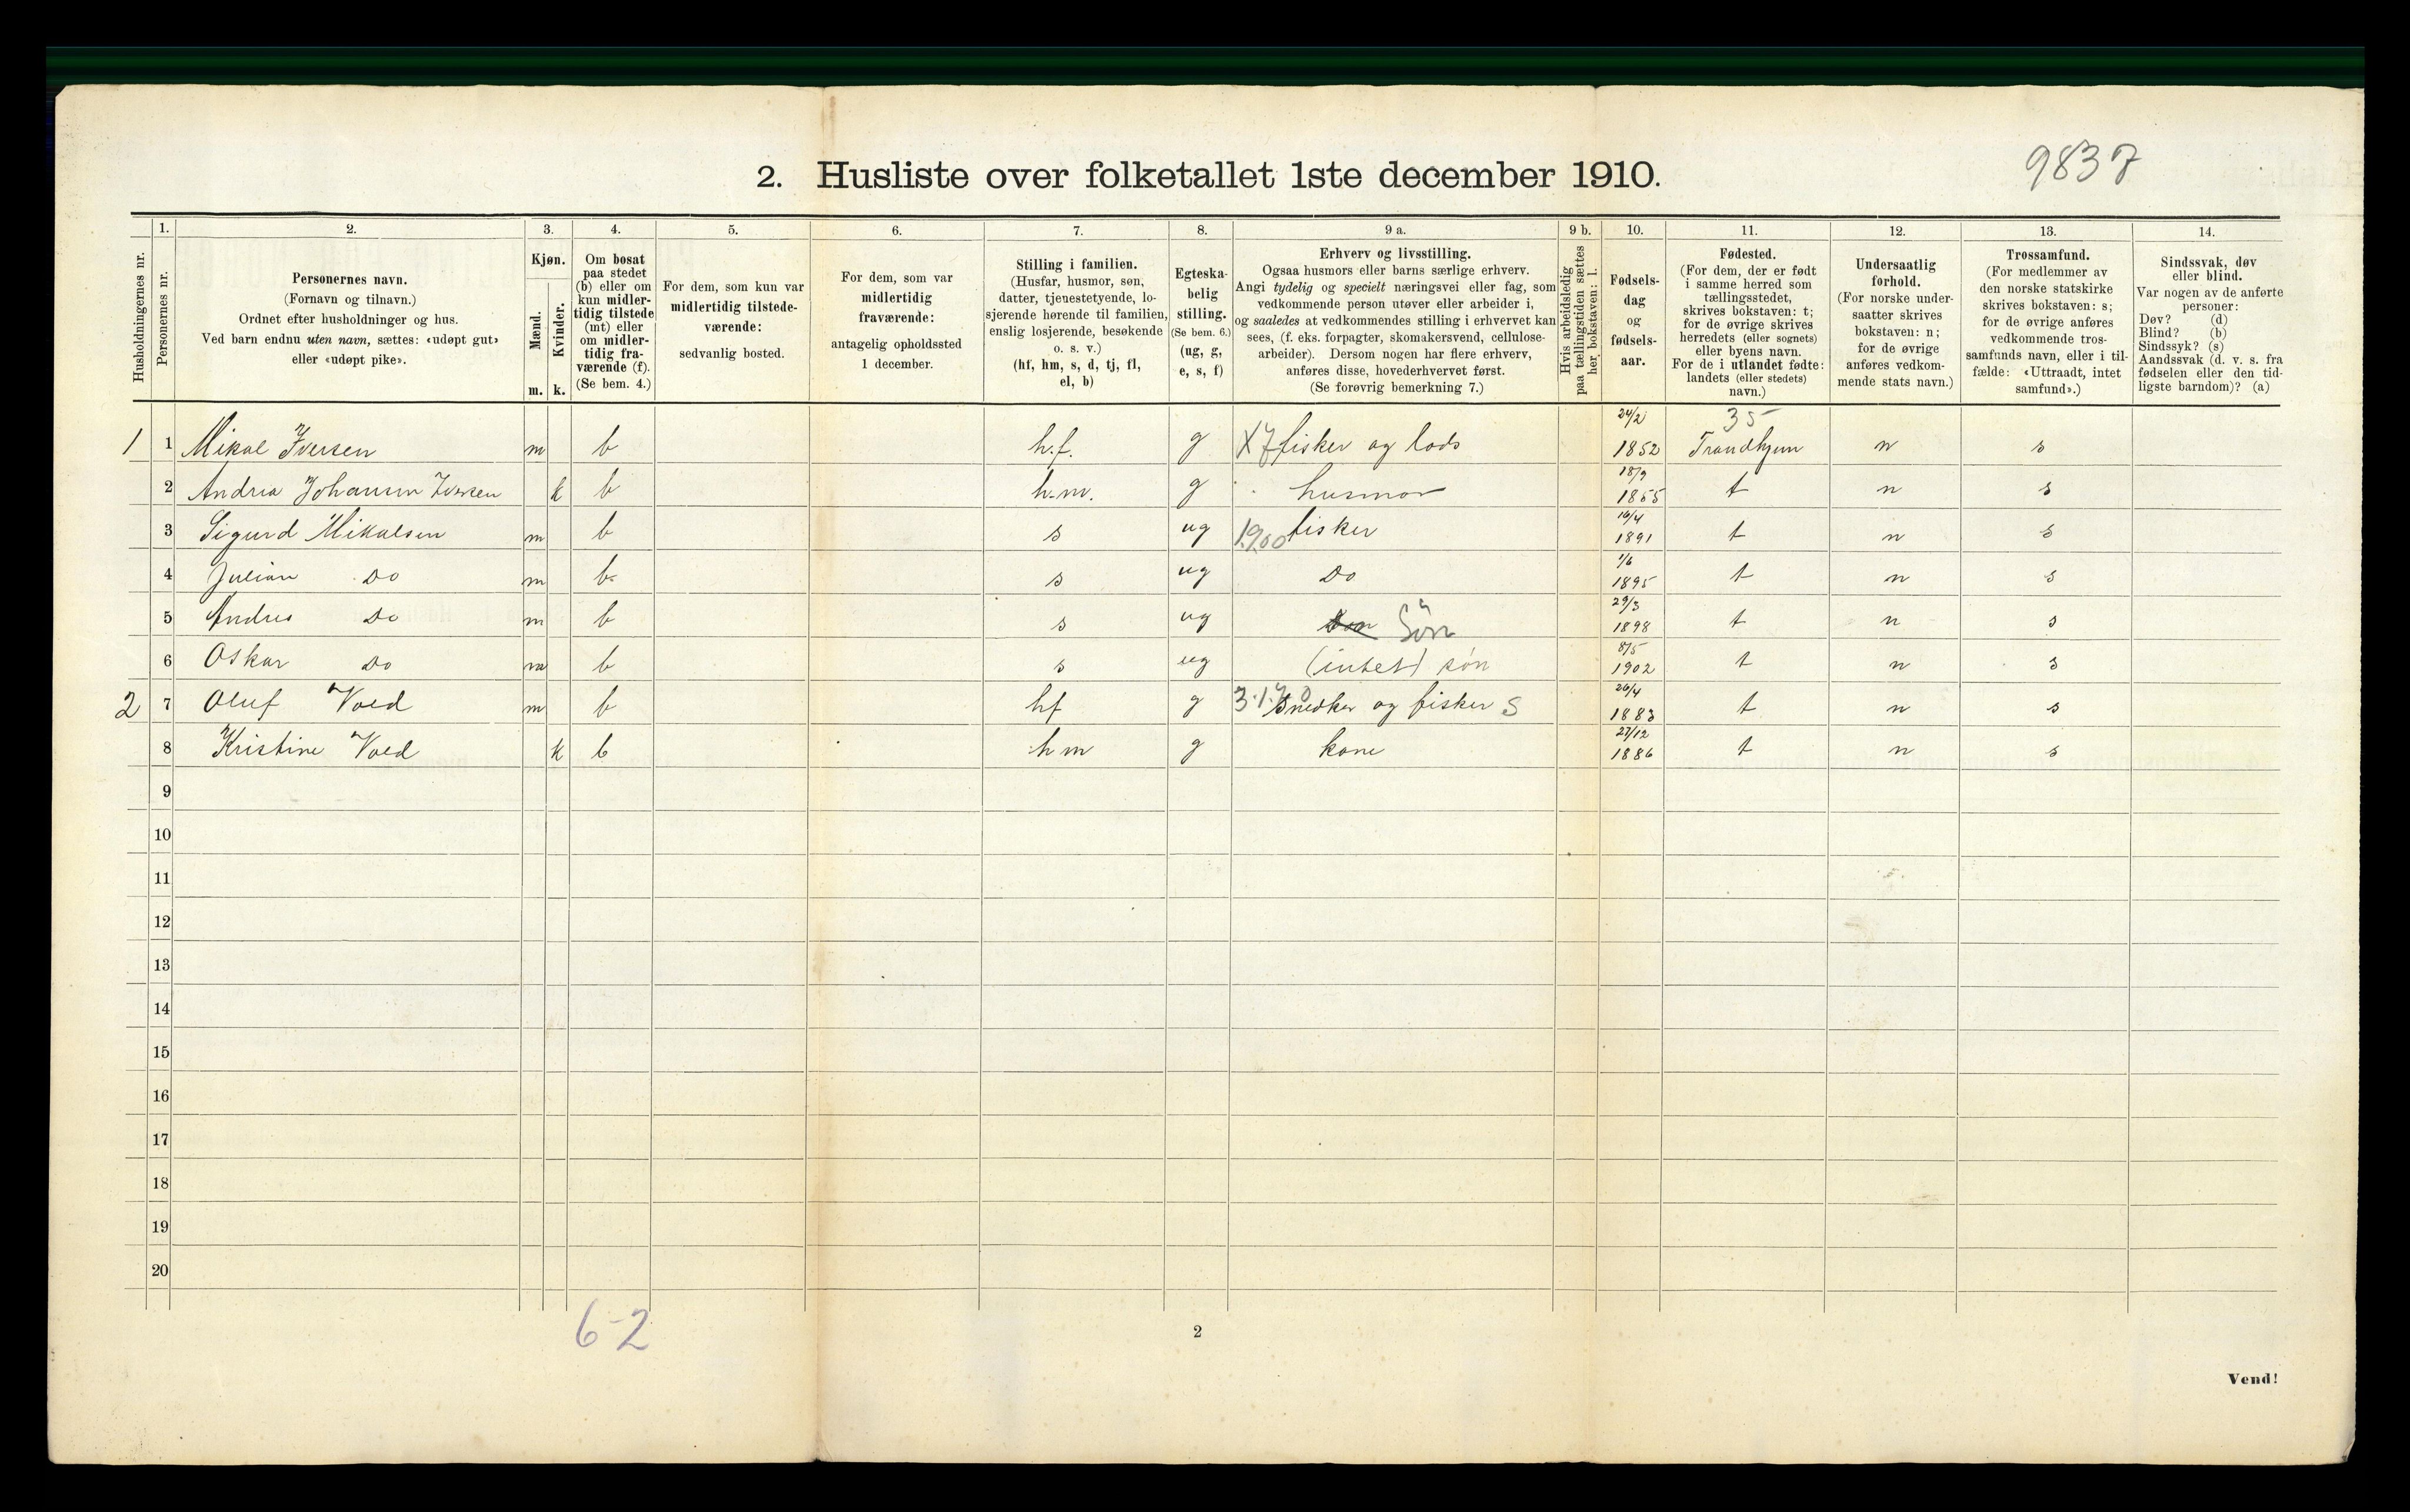 9837
2. Husliste over folketallet 1ste december 1910.
1. 2. 3. 4. 5. 6. 7. 8. 9 a. 9 b. 10. 11. 12. 13. 14.
Husholdningernes nr.
Personernes nr.
Personernes navn.
(Fornavn og tilnavn.)
Ordnet efter husholdninger og hus.
Ved barn endnu uten navn, sættes: «udøpt gut»
eller «udøpt pike».
Kjøn.
Mænd.
Kvinder.
m. k.
Om bosat
paa stedet
(b) eller om
kun midler-
tidig tilstede
(mt) eller
om midler-
tidig fra-
værende (f).
(Se bem. 4.)
For dem, som kun var
midlertidig tilstede-
værende:
sedvanlig bosted.
For dem, som var
midlertidig
fraværende:
antagelig opholdssted
1 december.
Stilling i familien.
(Husfar, husmor, søn,
datter, tjenestetyende, lo-
sjerende hørende til familien,
enslig losjerende, besøkende
o. s. v.)
(hf, hm, s, d, tj, fl,
el, b)
Egteska-
belig
stilling.
(Se bem. 6.)
(ug, g,
e, s, f)
Erhverv og livsstilling.
Ogsaa husmors eller barns særlige erhverv.
Angi tydelig og specielt næringsvei eller fag, som
vedkommende person utøver eller arbeider i,
og saaledes at vedkommendes stilling i erhvervet kan
sees, (f. eks. forpagter, skomakersvend, cellulose-
arbeider). Dersom nogen har flere erhverv,
anføres disse, hovederhvervet først.
(Se forøvrig bemerkning 7.)
Hvis arbeidsledig
paa tællingstiden sættes
her bokstaven: l.
Fødsels-
dag
og
fødsels-
aar.
Fødested.
(For dem, der er født
i samme herred som
tællingsstedet,
skrives bokstaven: t;
for de øvrige skrives
herredets (eller sognets)
eller byens navn.
For de i utlandet fødte:
landets (eller stedets)
navn.)
Undersaatlig
forhold.
(For norske under-
saatter skrives
bokstaven: n;
for de øvrige
anføres vedkom-
mende stats navn.)
Trossamfund.
(For medlemmer av
den norske statskirke
skrives bokstaven: s;
for de øvrige anføres
vedkommende tros-
samfunds navn, eller i til-
fælde: «Uttraadt, intet
samfund».)
Sindssvak, døv
eller blind.
Var nogen av de anførte
personer:
Døv? (d)
Blind? (b)
Sindssyk? (s)
Aandssvak (d. v. s. fra
fødselen eller den tid-
ligste barndom)? (a)
1 1 Mikal Iversen m b h.f. g X7 fisker og lods 24/2 1852 35 Trondhjem n s
2 Andrea Johansen Iversen k b h.m. g husmor 18/9 1855 t n s
3 Sigurd Mikalsen m b s ug 1900 fisker 16/4 1891 t n s
4 Julian Do m b s ug Do 1/6 1895 t n s
5 Andres Do m b s ug Søn 29/3 1898 t n s
6 Oskar Do m b s ug (intet) søn 8/5 1902 t n s
2 7 Oluf Vold m b hf g Snedker og fisker S 26/4 1883 t n s
8 Kristine Vold k b hm g kone 27/12 1886 t n s
9
10
11
12
13
14
15
16
17
18
19
20
6-2
2
Vend!